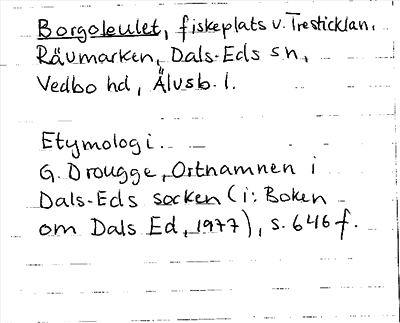 Borgoleulet, fiskeplats v. Tresticklan,
Råumarken, Dals-Eds sn,
Vedbo hd, Älvsb. l.
Etymologi.
G. Drougge, Ortnamnen i
Dals-Eds socken (i: Boken
om Dals Ed, 1977), s. 646 f.